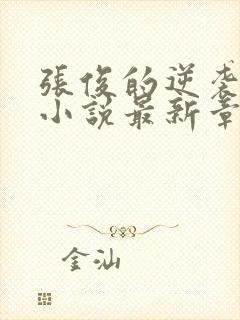 張俊的逆袭
小說最新章
金汕